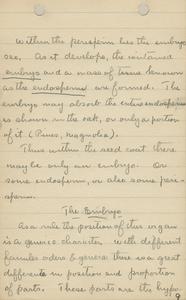 Within the perisperm lies the embryo
sac. As it develops, the contained
embryo and a mass of tissue known
as the endosperm are formed. The
embryo may absorb the entire endosperm
as shown in the oak, or only a portion
of it (Pines, Magnolia).
Thus within the seed coat there
may be only an embryo. Or
some endosperm, or also some peri-
sperm.
The Embryo
As a rule the position of this organ
is a generic character. With different
families orders & genera there is a great
difference in position and proportion
of parts. These parts are the hypo-